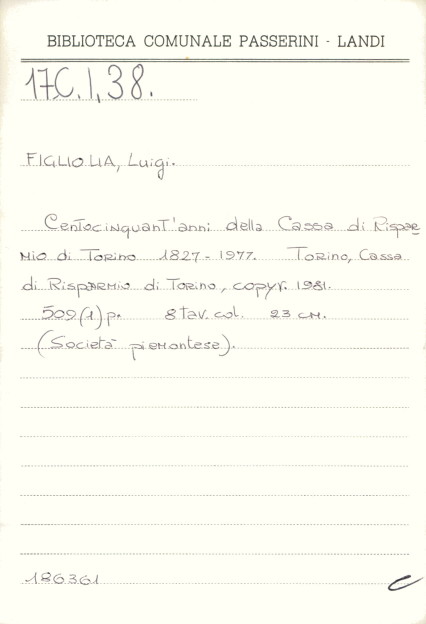 BIBLIOTECA COMUNALE PASSERINI - LANDI
17C.I,38.
FIGLIOLIA, Luigi.
Centocinquant'anni della Cassa di Rispar=
mio di Torino 1827-1977. Torino, Cassa
di Risparmio di Torino, copyr. 1981.
509(1)p. 8 tav. col. 23 cm.
(Società piemontese).
186361